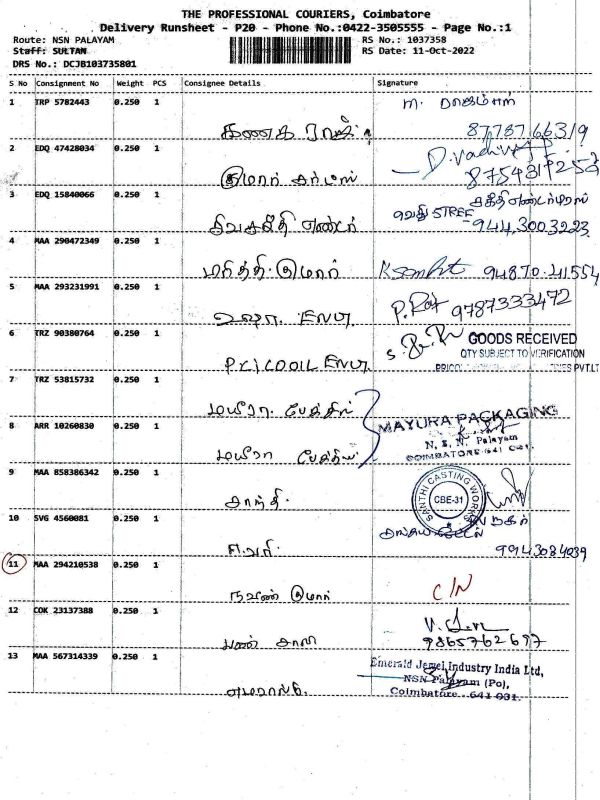 THE PROFESSIONAL COURIERS, Coimbatore
Delivery Runsheet - P20 - Phone No.:0422-3505555 - Page No.:1
Route: NSN PALAYAM
RS No.: 1037358
Staff: SULTAN
RS Date: 11-Oct-2022
DRS No.: DCJB103735801
S No Consignment No Weight PCS Consignee Details Signature
1 TRP 5782443 0.250 1
கனக ராஜ்
8778766319
2 EDQ 47428034 0.250 1
குமார்
8754319252
3 EDQ 15840066 0.250 1
சிவசக்தி எண்டர்
STREE
944,3003223
4 MAA 290472349 0.250 1
குமார்
94870-41554
5 MAA 293231991 0.250 1
உஷா. ENP
9787333472
6 TRZ 90380764 0.250 1
PRICOOIL ENP
GOODS RECEIVED
QTY SUBJECT TO VERIFICATION
PVT.LT
7 TRZ 53815732 0.250 1
மயூரா. பேக்கிங்
8 ARR 10260830 0.250 1
மயூரா
MAYURA PACKAGING
N. S. N. Palayam
COIMBATORE-641 031.
9 MAA 858386342 0.250 1
சாந்தி.
SANTHI CASTING WORKS
CBE-31
10 SVG 4560081 0.250 1
9943084039
11 MAA 294210538 0.250 1
நவீன் குமார்
C/N
12 COK 23137388 0.250 1
9865762697
13 MAA 567314339 0.250 1
எமரால்டு.
Emerald Jewel Industry India Ltd,
NSN Palayam (Po),
Coimbatore - 641 031.